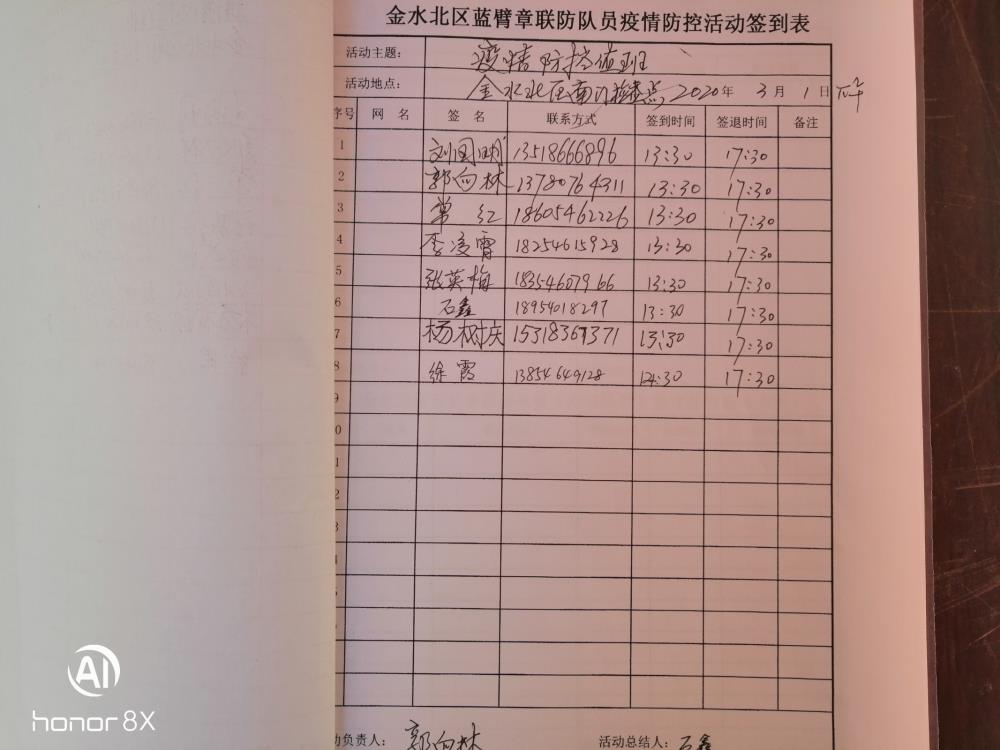 金水北区蓝臂章联防队员疫情防控活动签到表
活动主题： 疫情防控值班
活动地点： 金水北区南门检查点 2020年 3月 1日 下午
序号 网 名 签 名 联系方式 签到时间 签退时间 备注
1 刘国明 13518666896 13:30 17:30
2 郭向林 13780764311 13:30 17:30
3 常红 18605462226 13:30 17:30
4 李凌霄 18254615928 13:30 17:30
5 张英梅 18354607966 13:30 17:30
6 石鑫 18954018297 13:30 17:30
7 杨树庆 15318367371 13:30 17:30
8 徐霞 13854649128 17:30
9
0
1
2
3
动负责人： 郭向林 活动总结人： 石鑫
AI
honor 8X